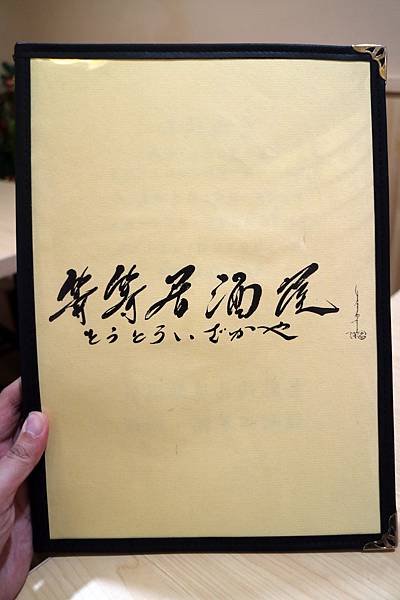 等等居酒屋
とうとういざかや